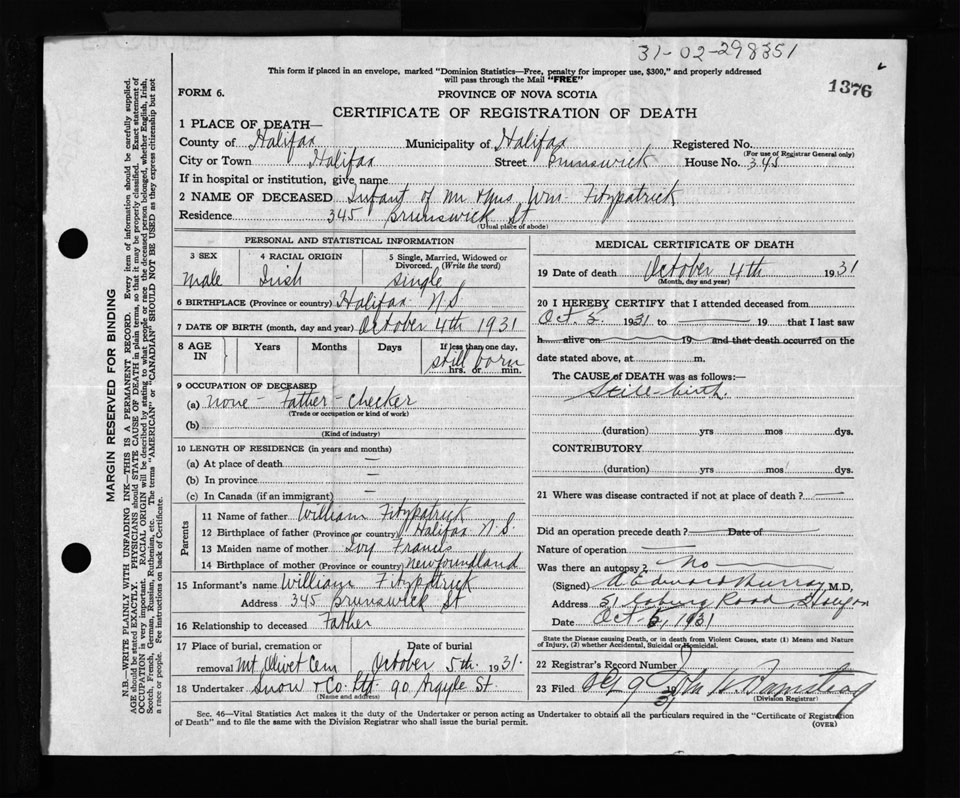 31-02-298351
This form if placed in an envelope, marked "Dominion Statistics—Free, penalty for improper use, $300," and properly addressed
will pass through the Mail "FREE"
FORM 6.
PROVINCE OF NOVA SCOTIA
1376
CERTIFICATE OF REGISTRATION OF DEATH
1 PLACE OF DEATH—
County of Halifax Municipality of Halifax Registered No.
(For use of Registrar General only)
City or Town Halifax Street Brunswick House No. 345
If in hospital or institution, give name
2 NAME OF DECEASED Infant of Mr & Mrs Wm. Fitzpatrick
Residence 345 Brunswick St
(Usual place of abode)
PERSONAL AND STATISTICAL INFORMATION
3 SEX 4 RACIAL ORIGIN 5 Single, Married, Widowed or
Divorced. (Write the word)
Male Irish Single
6 BIRTHPLACE (Province or country) Halifax N.S
7 DATE OF BIRTH (month, day and year) October 4th 1931
8 AGE IN Years Months Days If less than one day,
still born
hrs. or min.
9 OCCUPATION OF DECEASED
(a) None - Father - Checker
(Trade or occupation or kind of work)
(b)
(Kind of industry)
10 LENGTH OF RESIDENCE (in years and months)
(a) At place of death —
(b) In province —
(c) In Canada (if an immigrant) —
Parents
11 Name of father William Fitzpatrick
12 Birthplace of father (Province or country) Halifax N.S.
13 Maiden name of mother Ivy Francis
14 Birthplace of mother (Province or country) Newfoundland
15 Informant's name William Fitzpatrick
Address 345 Brunswick St
16 Relationship to deceased Father
17 Place of burial, cremation or Date of burial
removal Mt Olivet Cem October 5th 1931.
18 Undertaker Snow & Co. Ltd 90 Argyle St.
(Name and address)
MEDICAL CERTIFICATE OF DEATH
19 Date of death October 4th 1931
(Month, day and year)
20 I HEREBY CERTIFY that I attended deceased from
Oct. 5 1931 to — 19 that I last saw
h alive on 19 and that death occurred on the
date stated above, at m.
The CAUSE of DEATH was as follows:—
Still-birth.
(duration) yrs mos dys.
CONTRIBUTORY
(duration) yrs mos dys.
21 Where was disease contracted if not at place of death? —
Did an operation precede death? Date of
Nature of operation —
Was there an autopsy? No
(Signed) A Edward Murray M.D,
Address 51 Coburg Road,
Date Oct. 5, 1931
State the Disease causing Death, or in death from Violent Causes, state (1) Means and Nature
of Injury, (2) whether Accidental, Suicidal or Homicidal.
22 Registrar's Record Number
23 Filed
(Division Registrar)
Sec. 46—Vital Statistics Act makes it the duty of the Undertaker or person acting as Undertaker to obtain all the particulars required in the "Certificate of Registration
of Death" and to file the same with the Division Registrar who shall issue the burial permit.
(OVER)
MARGIN RESERVED FOR BINDING
N.B.—WRITE PLAINLY WITH UNFADING INK—THIS IS A PERMANENT RECORD. Every item of information should be carefully supplied.
AGE should be stated EXACTLY. PHYSICIANS should STATE CAUSE OF DEATH in plain terms, so that it may be properly classified. Exact statement of
OCCUPATION is very important. RACIAL ORIGIN will be described by stating to what people or race the deceased person belonged, whether English, Irish,
Scotch, French, German, Russian, Ruthenian, etc. The terms "AMERICAN" or "CANADIAN" SHOULD NOT BE USED as they express citizenship but not
a race or people. See instructions on back of Certificate.